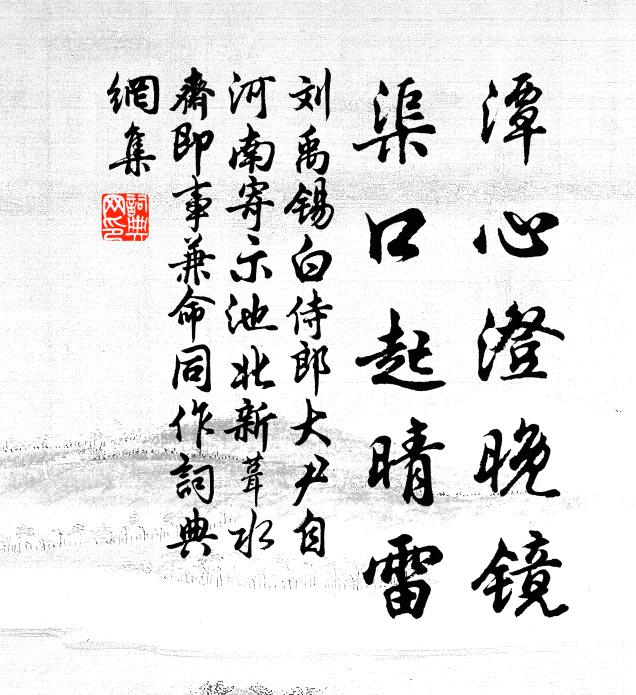 潭心澄晚镜
渠口起晴雷
刘禹锡白侍郎大尹自
河南寄示池北新葺水
齋即事兼命同作詞典
網集
詞典
网印